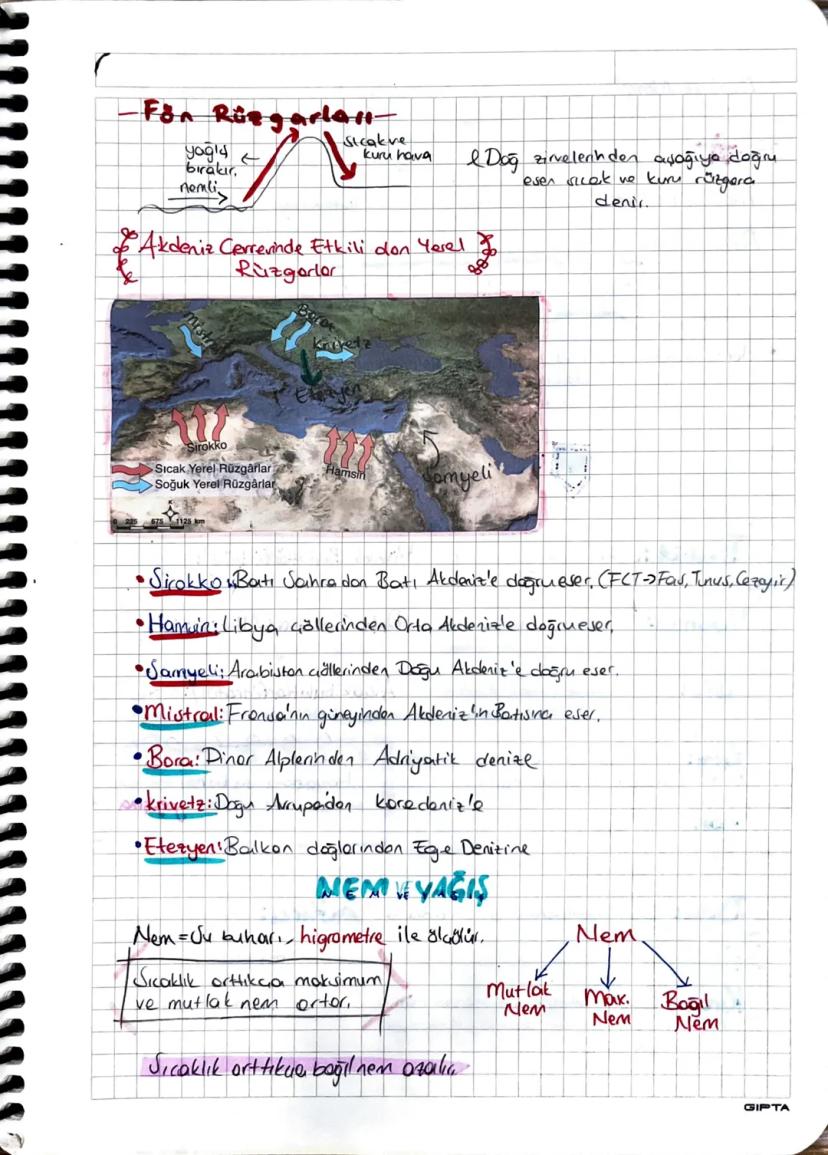 Fön Rüzgarları
yağış
bırakır,
nemli
sıcak ve
kuru hava
Dağ zirvelerinden aşağıya doğru
esen sıcak ve kuru rüzgara
denir.
Akdeniz Çevresinde Etkili olan Yerel
Rüzgarlar
Mistral
Bora
Krivetz
Etezyen
Sirokko
Hamsin
Samyeli
Sıcak Yerel Rüzgârlar
Soğuk Yerel Rüzgârlar
K
0 225 675 1125 km
• Sirokko: Batı Sahradan Batı Akdeniz'e doğru eser. (FCT→Fas, Tunus, Cezayir)
• Hamsin: Libya çöllerinden Orta Akdeniz'e doğru eser.
• Samyeli: Arabistan çöllerinden Doğu Akdeniz'e doğru eser.
• Mistral: Fransa'nın güneyinden Akdeniz'in Batısına eser.
• Bora: Dinar Alplerinden Adriyatik denize
• krivetz: Doğu Avrupa'dan karadeniz'e
• Etezyen: Balkan dağlarından Ege Denizine
NEM VE YAĞIŞ
Nem = Su buharı, higrometre ile ölçülür.
Sıcaklık arttıkça maksimum
ve mutlak nem artar.
Nem
Mutlak
Nem
Max.
Nem
Bağıl
Nem
Sıcaklık arttıkça bağıl nem azalır.
GIPTA